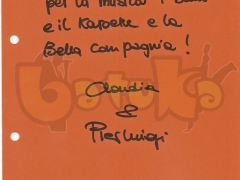 per la musica
e il Karaoke e la
Bella Compagnia!
Claudia
&
Pierluigi
Batuka